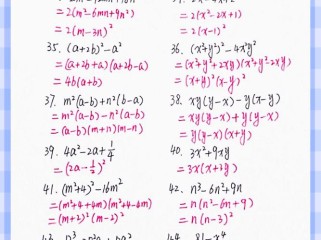 = 2(m²-6mn+9n²)
= 2(m-3n)²
= 2(x²-2x+1)
= 2(x-1)²
35. (a+2b)²-a²
= (a+2b+a)(a+2b-a)
= 4b(a+b)
36. (x²+y²)²-4x²y²
= (x²+y²+2xy)(x²+y²-2xy)
= (x+y)²(x-y)²
37. m²(a-b)+n²(b-a)
= m²(a-b)-n²(a-b)
= (a-b)(m+n)(m-n)
38. xy(y-x)-y(x-y)
= xy(y-x)+y(y-x)
= y(y-x)(x+1)
39. 4a²-2a+1/4
= (2a-1/2)²
40. 3x²+9xy
= 3x(x+3y)
41. (m²+4)²-16m²
= (m²+4+4m)(m²+4-4m)
= (m+2)²(m-2)²
42. n³-6n²+9n
= n(n²-6n+9)
= n(n-3)²